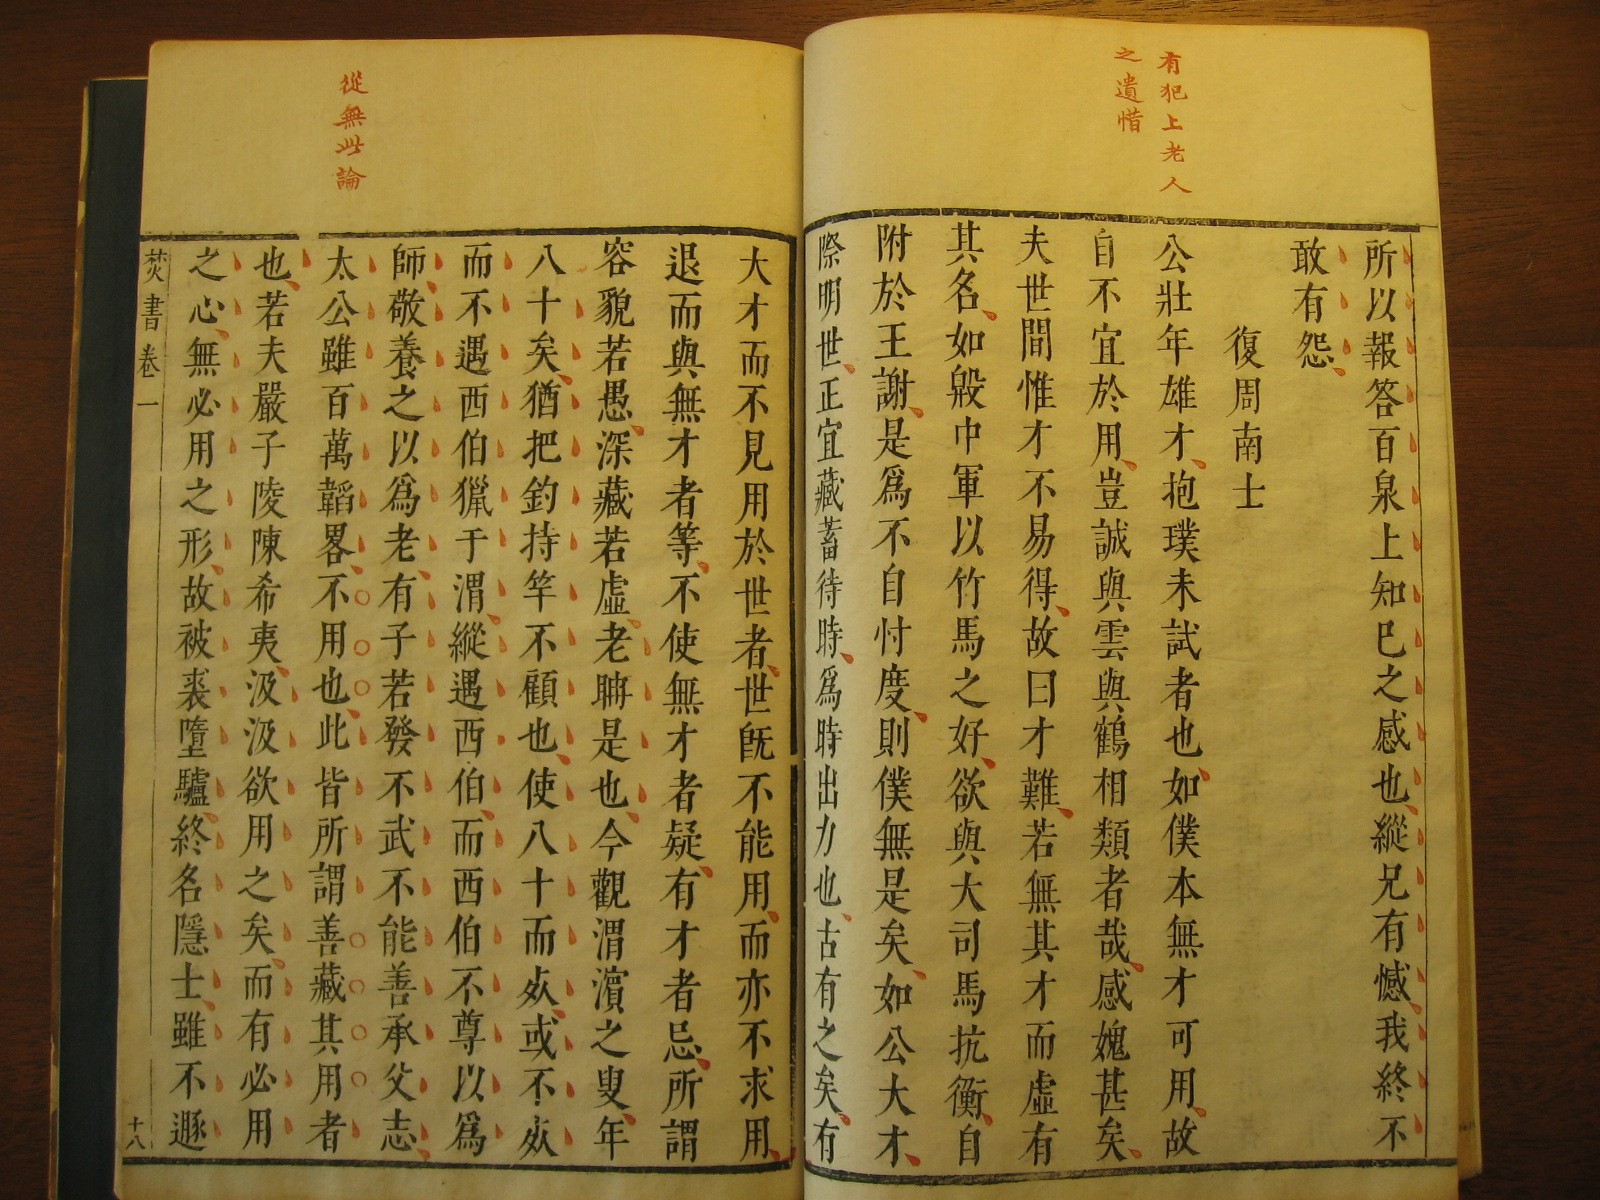 有犯上老人
之遺惜
所以報答百泉上知已之感也縱兄有憾我終不
敢有怨
復周南士
公壯年雄才抱璞未試者也如僕本無才可用故
自不宜於用豈誠與雲與鶴相類者哉感媿甚矣
夫世間惟才不易得故曰才難若無其才而虛有
其名如殷中軍以竹馬之好欲與大司馬抗衡自
附於王謝是爲不自忖度則僕無是矣如公大才
際明世正宜藏蓄待時爲時出力也古有之矣有
從無此論
大才而不見用於世者世旣不能用而亦不求用
退而與無才者等不使無才者疑有才者忌所謂
容貌若愚深藏若虛老聃是也今觀渭濵之叟年
八十矣猶把釣持竿不顧也使八十而死或不死
而不遇西伯獵于渭縱遇西伯而西伯不尊以爲
師敬養之以爲老有子若發不武不能善承父志
太公雖百萬韜畧不用也此皆所謂善藏其用者
也若夫嚴子陵陳希夷汲汲欲用之矣而有必用
之心無必用之形故被裘墮驢終名隱士雖不遯
焚書卷一
十八